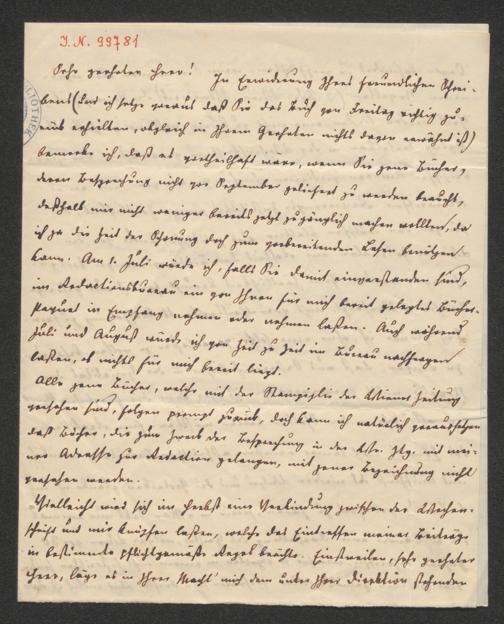 I. N. 99781
Sehr geehrter Herr! In Erwiderung Ihres freundlichen Schrei-
bens (und ich setze voraus daß Sie das Buch von Freitag richtig zu-
rück erhielten, obgleich in Ihrem Geehrten nichts davon erwähnt ist)
bemerke ich, daß es vortheilhaft wäre, wenn Sie jene Bücher,
deren Besprechung nicht vor September geliefert zu werden braucht,
deßhalb mir nicht weniger bereits jetzt zugänglich machen wollten, da
ich ja die Zeit der Schonung doch zum vorbereitenden Lesen benützen
kann. Am 1. Juli würde ich, falls Sie damit einverstanden sind,
im Redactionsbureau ein von Ihnen für mich bereit gelegtes Bücher-
paquet in Empfang nehmen oder nehmen lassen. Auch während
Juli und August würde ich von Zeit zu Zeit im Bureau nachfragen
lassen, ob nichts für mich bereit liegt.
Alle jene Bücher, welche mit der Stampiglie der Wiener Zeitung
versehen sind, folgen prompt zurück, doch kann ich natürlich voraussetzen
daß Bücher, die zum Zweck der Besprechung in der Wr. Ztg. mit mei-
ner Adresse zur Redaction gelangen, mit jener Bezeichnung nicht
versehen werden.
Vielleicht wird sich im Herbst eine Verbindung zwischen der Wochen-
schrift und mir knüpfen lassen, welche das Eintreffen meiner Beiträge
in bestimmte pflichtgemäße Regel brächte. Einstweilen, sehr geehrter
Herr, läge es in Ihrer Macht mich dem unter Ihrer Direktion stehenden